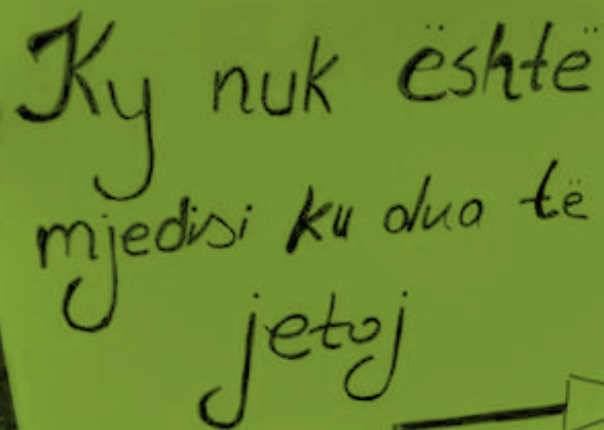 Ky nuk është
mjedisi ku dua të
jetoj